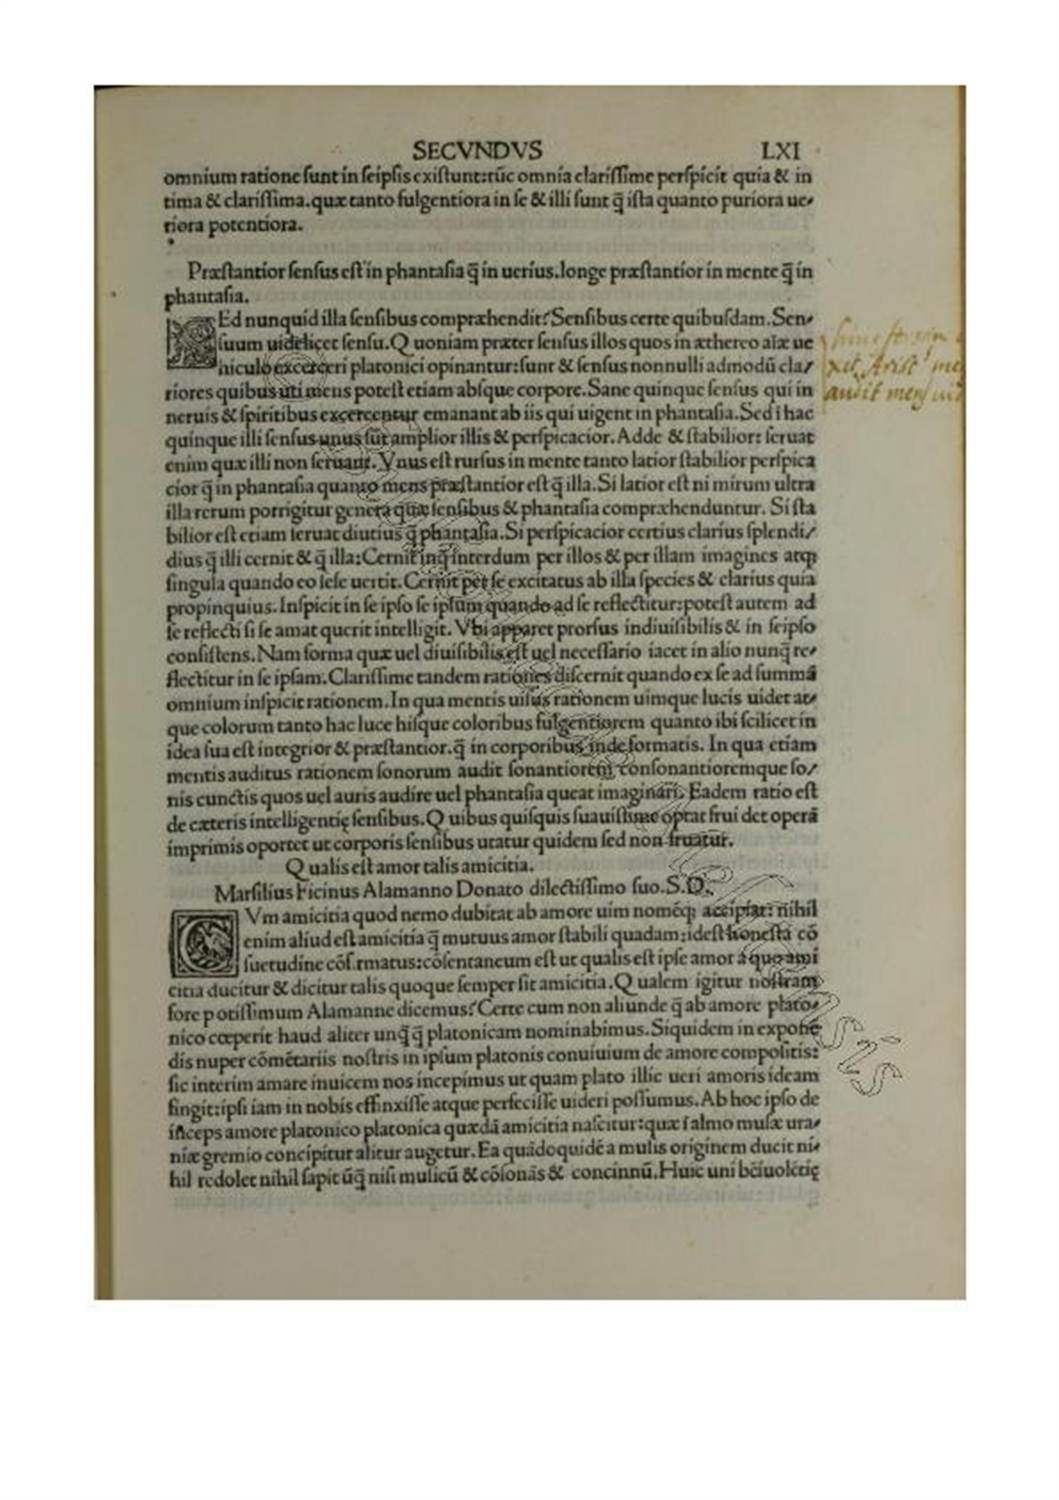 SECVNDVS LXI
omnium ratione ſunt in ſeipſis exiſtunt:tūc omnia clariſſime perſpicit quia & in
tima & clariſſima.quæ tanto fulgentiora in ſe & illi ſunt q̄ iſta quanto puriora ue⸗
riora potentiora.
Præſtantior ſenſus eſt in phantaſia q̄ in uerius.longe præſtantior in mente q̄ in
phantaſia.
SEd nunquid illa ſenſibus compræhendit?Senſibus certe quibuſdam.Sen⸗
ſuum uidelicet ſenſu.Q uoniam præter ſenſus illos quos in æthereo aīæ ue
hiculo excerceri platonici opinantur:ſunt & ſenſus nonnulli admodū cla/
riores quibus uti mens poteſt etiam abſque corpore.Sane quinque ſenſus qui in
neruis & ſpiritibus excercentur emanant ab iis qui uigent in phantaſia.Sed ī hac
quinque illi ſenſus unus ſūt amplior illis & perſpicacior.Adde & ſtabilior: ſeruat
enim quæ illi non ſeruant.Vnus eſt rurſus in mente tanto latior ſtabilior perſpica
cior q̄ in phantaſia quanto mens præſtantior eſt q̄ illa.Si latior eſt ni mirum ultra
illa rerum porrigitur genera quæ ſenſibus & phantaſia compræhenduntur. Si ſta
bilior eſt etiam ſeruat diutius q̄ phantaſia.Si perſpicacior certius clarius ſplendi/
dius q̄ illi cernit & q̄ illa:Cernit inq̄ interdum per illos & per illam imagines atq;
ſingula quando eo ſeſe uertit.Cernit per ſe excitatus ab illa ſpecies & clarius quia
propinquius.Inſpicit in ſe ipſo ſe ipſum quando ad ſe reflectitur:poteſt autem ad
ſe reflecti ſi ſe amat querit intelligit. Vbi apparet prorſus indiuiſibilis & in ſeipſo
conſiſtens.Nam forma quæ uel diuiſibilis eſt uel neceſſario iacet in alio nunq̄ re⸗
flectitur in ſe ipſam.Clariſſime tandem rationes diſcernit quando ex ſe ad ſummā
omnium inſpicit rationem.In qua mentis uiſus rationem uimque lucis uidet at⸗
que colorum tanto hac luce hiſque coloribus fulgentiorem quanto ibi ſcilicet in
idea ſua eſt integrior & præſtantior.q̄ in corporibus inde formatis. In qua etiam
mentis auditus rationem ſonorum audit ſonantiorem conſonantioremque ſo/
nis cunctis quos uel auris audire uel phantaſia queat imaginari. Eadem ratio eſt
de cæteris intelligentię ſenſibus.Q uibus quiſquis ſuauiſſime optat frui det operā
imprimis oportet ut corporis ſenſibus utatur quidem ſed non fruatur.
Q ualis eſt amor talis amicitia.
Marſilius Ficinus Alamanno Donato dilectiſſimo ſuo.S.D.
CVm amicitia quod nemo dubitat ab amore uim nomēq; accipiat: nihil
enim aliud eſt amicitia q̄ mutuus amor ſtabili quadam:ideſt honeſta cō
ſuetudine cōf.rmatus:cōſentaneum eſt ut qualis eſt ipſe amor a quo ami
citia ducitur & dicitur talis quoque ſemper ſit amicitia.Q ualem igitur noſtram
fore potiſſimum Alamanne dicemus?Certe cum non aliunde q̄ ab amore plato⸗
nico cœperit haud aliter unq̄ q̄ platonicam nominabimus.Siquidem in exponē
dis nuper cōmētariis noſtris in ipſum platonis conuiuium de amore compoſitis:
ſic interim amare inuicem nos incepimus ut quam plato illic ueri amoris ideam
fingit:ipſi iam in nobis effinxiſſe atque perfeciſſe uideri poſſumus.Ab hoc ipſo de
inceps amore platonico platonica quædā amicitia naſcitur:quæ ī almo muſæ ura⸗
niæ gremio concipitur alitur augetur. Ea quādoquidē a muſis originem ducit ni⸗
hil redolet nihil ſapit ūq̄ niſi muſicū & cōſonās & concinnū.Huic uni bēiuolētię